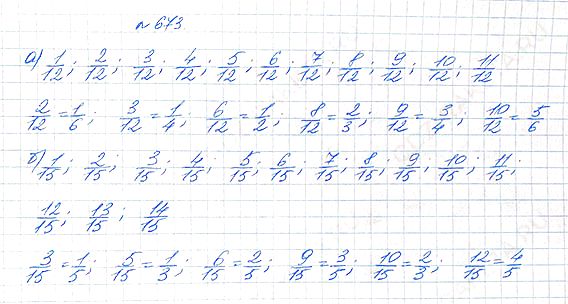 № 673
а) 1/12; 2/12; 3/12; 4/12; 5/12; 6/12; 7/12; 8/12; 9/12; 10/12; 11/12
2/12 = 1/6; 3/12 = 1/4; 6/12 = 1/2; 8/12 = 2/3; 9/12 = 3/4; 10/12 = 5/6
б) 1/15; 2/15; 3/15; 4/15; 5/15; 6/15; 7/15; 8/15; 9/15; 10/15; 11/15;
12/15; 13/15; 14/15
3/15 = 1/5; 5/15 = 1/3; 6/15 = 2/5; 9/15 = 3/5; 10/15 = 2/3; 12/15 = 4/5